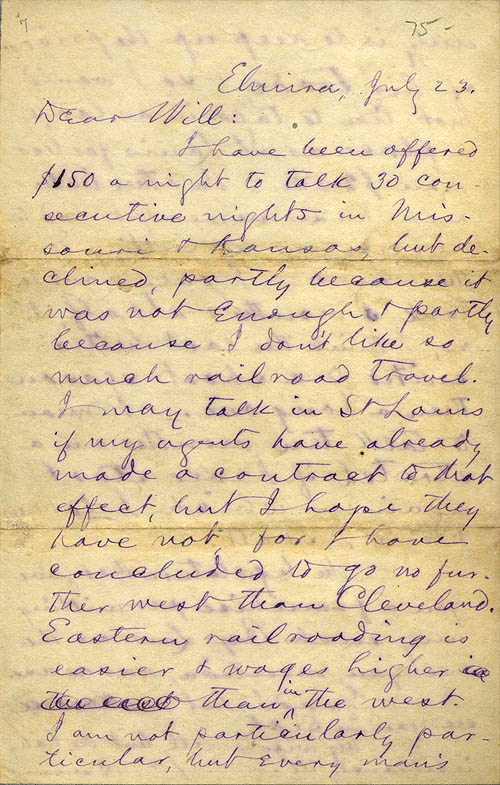 7
75-
Elmira, July 23.
Dear Will:
I have been offered
$150 a night to talk 30 con-
secutive nights in Mis-
souri & Kansas, but de-
clined, partly because it
was not enough & partly
because I don't like so
much railroad travel.
I may talk in St Louis
if my agents have already
made a contract to that
effect, but I hope they
have not, for I have
concluded to go no fur-
ther west than Cleveland.
Eastern railroading is
easier & wages higher
than in the west.
I am not particularly par-
ticular, but every man's